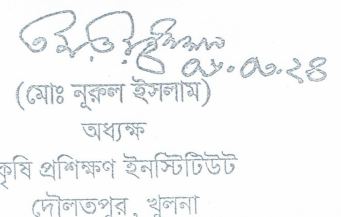 (মোঃ নূরুল ইসলাম)
অধ্যক্ষ
কৃষি প্রশিক্ষণ ইনস্টিটিউট
দৌলতপুর, খুলনা